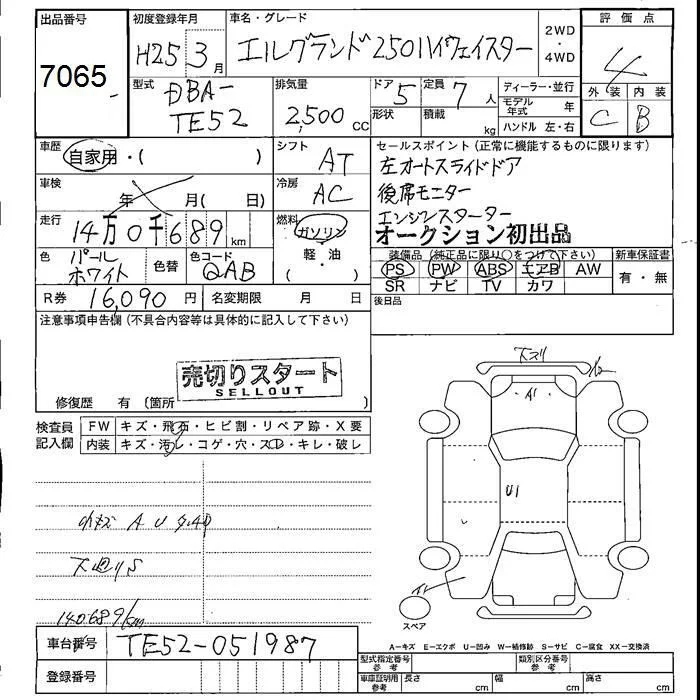 出品番号
7065
初度登録年月
H25 3月
車名・グレード
エルグランド250ハイウェイスター
2WD・4WD
評価点
4
外装 内装
C B
型式
DBA-
TE52
排気量
2,500cc
ドア 5
形状
定員 7人
積載 kg
ディーラー・並行
モデル年式 年
ハンドル 左・右
車歴
自家用・( )
シフト
AT
セールスポイント(正常に機能するものに限ります)
左オートスライドドア
後席モニター
エンジンスターター
オークション初出品
車検
年 月( 日)
冷房
AC
走行
14万0千689km
燃料
ガソリン
軽・油
( )
色
パール
ホワイト
色替
色コード
QAB
装備品(純正品に限り○をつけて下さい)
PS PW ABS エアB AW
SR ナビ TV カワ
新車保証書
有・無
R券 16,090円
名変期限 月 日
後日品
注意事項申告欄(不具合内容等は具体的に記入して下さい)
売切りスタート
SELLOUT
修復歴 有(箇所 )
検査員
記入欄
FW キズ・飛石・ヒビ割・リペア跡・X要
内装 キズ・汚レ・コゲ・穴・スレ・キレ・破レ
小キズ A U
下廻りS
140689km
A1
U1
スペア
A-キズ E-エクボ U-凹み W-補修跡 S-サビ C-腐食 XX-交換済
車台番号 TE52-051987
登録番号
型式指定番号
参考
類別区分番号
参考
車庫証明用
参考
長さ cm 幅 cm 高さ cm